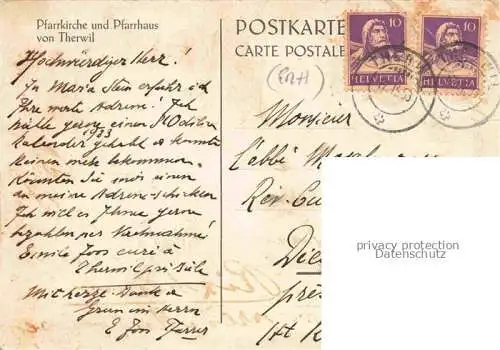 Pfarrkirche und Pfarrhaus
von Therwil
Hochwürdiger Herr!
In Maria Stein erfuhr ich
Ihre werte Adresse! Ich
hätte gerne einen
1933
Kalender gehabt & konnte
keinen mehr bekommen.
Könnten Sie mir einen
an meine Adresse schicken
Ich will es Ihnen gerne
bezahlen per Nachnahme!
Emile Joos curé à
Therwil près Bâle
Mit herzl. Dank &
Gruss im Herrn
E Joos Pfarrer
POSTKARTE
CARTE POSTALE
10
HELVETIA
10
HELVETIA
Monsieur
l'abbé
privacy protection
Datenschutz